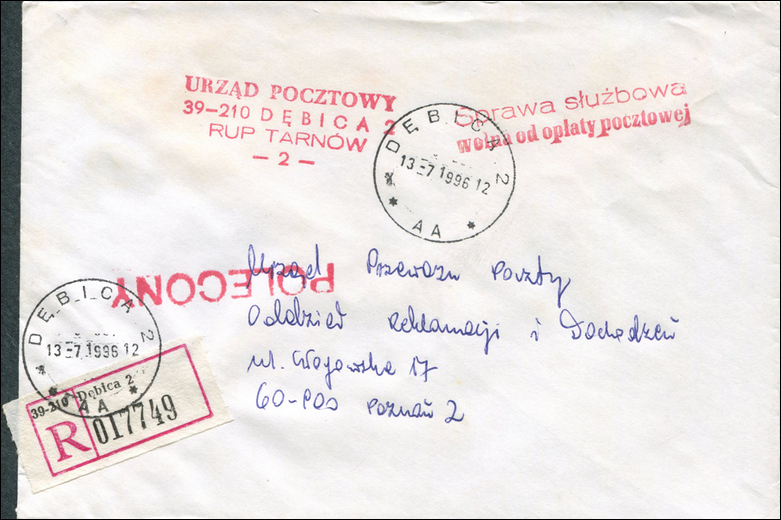 URZĄD POCZTOWY
39-210 DĘBICA 2
RUP TARNÓW
- 2 -
Sprawa służbowa
wolna od opłaty pocztowej
DĘBICA 2
13 -7 1996 12
* AA *
POLECONY
Urząd Przewozu Poczty
Oddział Reklamacji i Dochodzeń
ul. Głogowska 17
60-900 Poznań 2
DĘBICA 2
13 -7 1996 12
* AA *
39-210 Dębica 2
R 017749